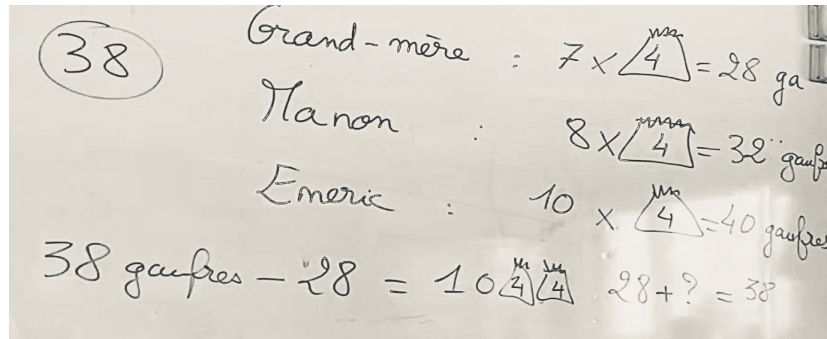 38
Grand-mère : 7 × 4 = 28 ga
Manon : 8 × 4 = 32 gaufres
Emeric : 10 × 4 = 40 gaufres
38 gaufres - 28 = 10 4 4 28 + ? = 38